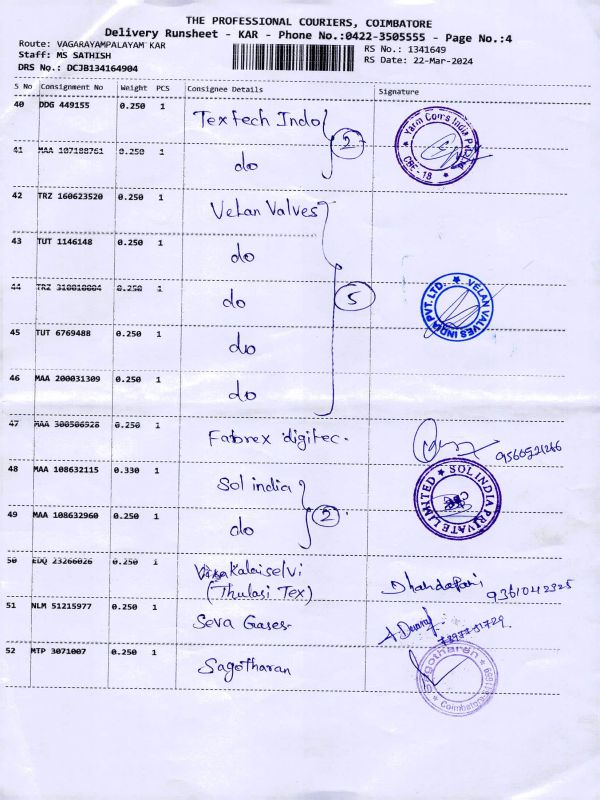 THE PROFESSIONAL COURIERS, COIMBATORE
Delivery Runsheet - KAR - Phone No.:0422-3505555 - Page No.:4
Route: VAGARAYAMPALAYAM KAR
RS No.: 1341649
Staff: MS SATHISH
RS Date: 22-Mar-2024
DRS No.: DCJB134164904
S No Consignment No Weight PCS Consignee Details Signature
40 DDG 449155 0.250 1 Textech Indo
2
Yarn Com's India P
CBE - 18
41 MAA 107188761 0.250 1 do
42 TRZ 160623520 0.250 1 Velan Valves
43 TUT 1146148 0.250 1 do
44 TRZ 310810804 0.250 1 do
5
VELAN VALVES INDIA PVT. LTD.
45 TUT 6769488 0.250 1 do
46 MAA 200031309 0.250 1 do
47 MAA 300506928 0.250 1 Fabrex digitec.
48 MAA 108632115 0.330 1 Sol india
SOL INDIA PRIVATE LIMITED
2
49 MAA 108632960 0.250 1 do
50 EDQ 23266026 0.250 1 Kalaiselvi
(Thulasi Tex)
Dhandapani 9361042325
51 NLM 51215977 0.250 1 Seva Gases.
52 MTP 3071007 0.250 1 Sagotharan
Coimbatore